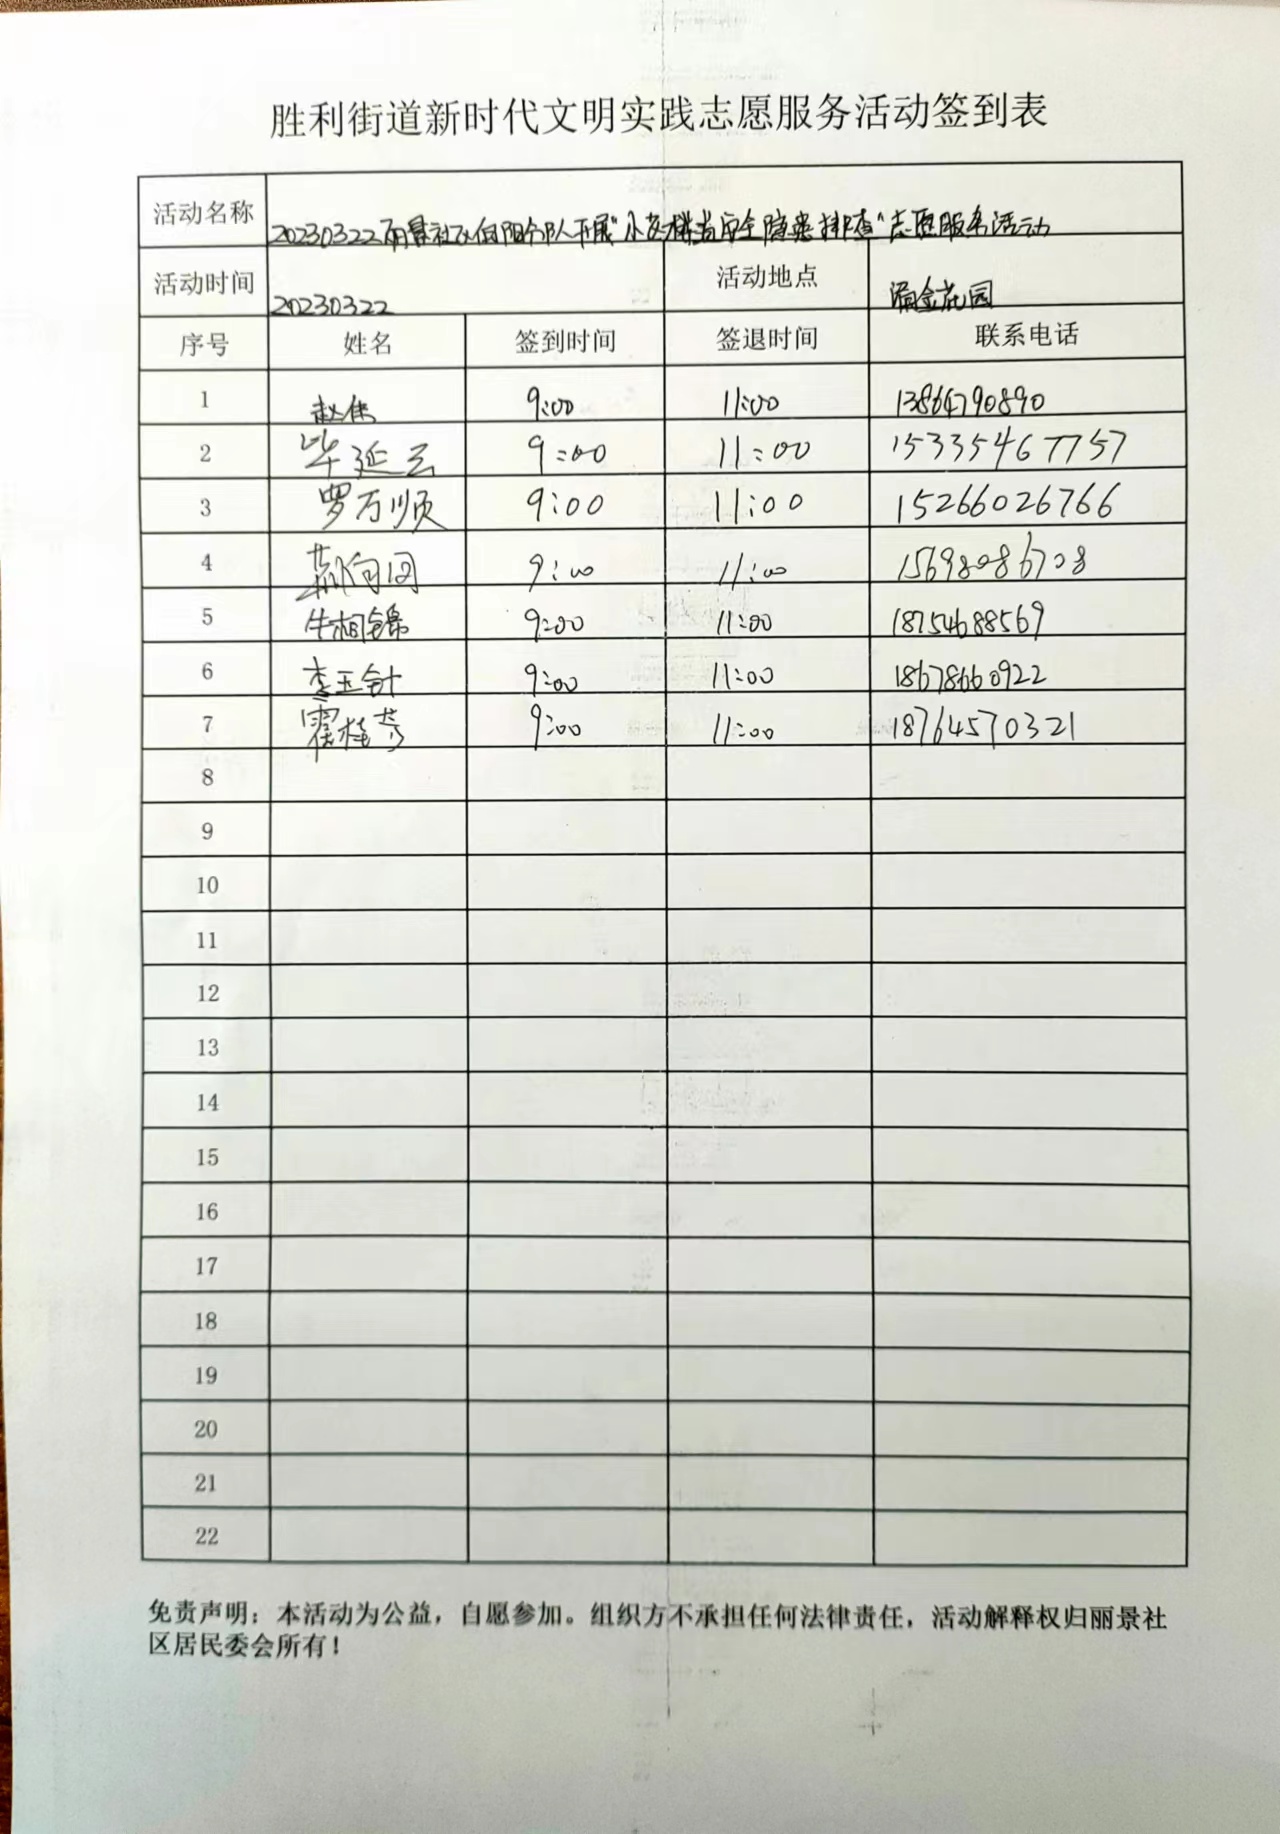 胜利街道新时代文明实践志愿服务活动签到表
活动名称 20230322丽景社区向阳分队开展"小区楼道安全隐患排查"志愿服务活动
活动时间 20230322 活动地点 涌金花园
序号 姓名 签到时间 签退时间 联系电话
1 赵伟 9:00 11:00 13864790890
2 毕延云 9:00 11:00 15335467757
3 罗万顺 9:00 11:00 15266026766
4 9:00 11:00 15698086708
5 牛相锦 9:00 11:00 18754688569
6 李玉针 9:00 11:00 18678660922
7 霍桂芳 9:00 11:00 18764570321
8
9
10
11
12
13
14
15
16
17
18
19
20
21
22
免责声明：本活动为公益，自愿参加。组织方不承担任何法律责任，活动解释权归丽景社
区居民委会所有！